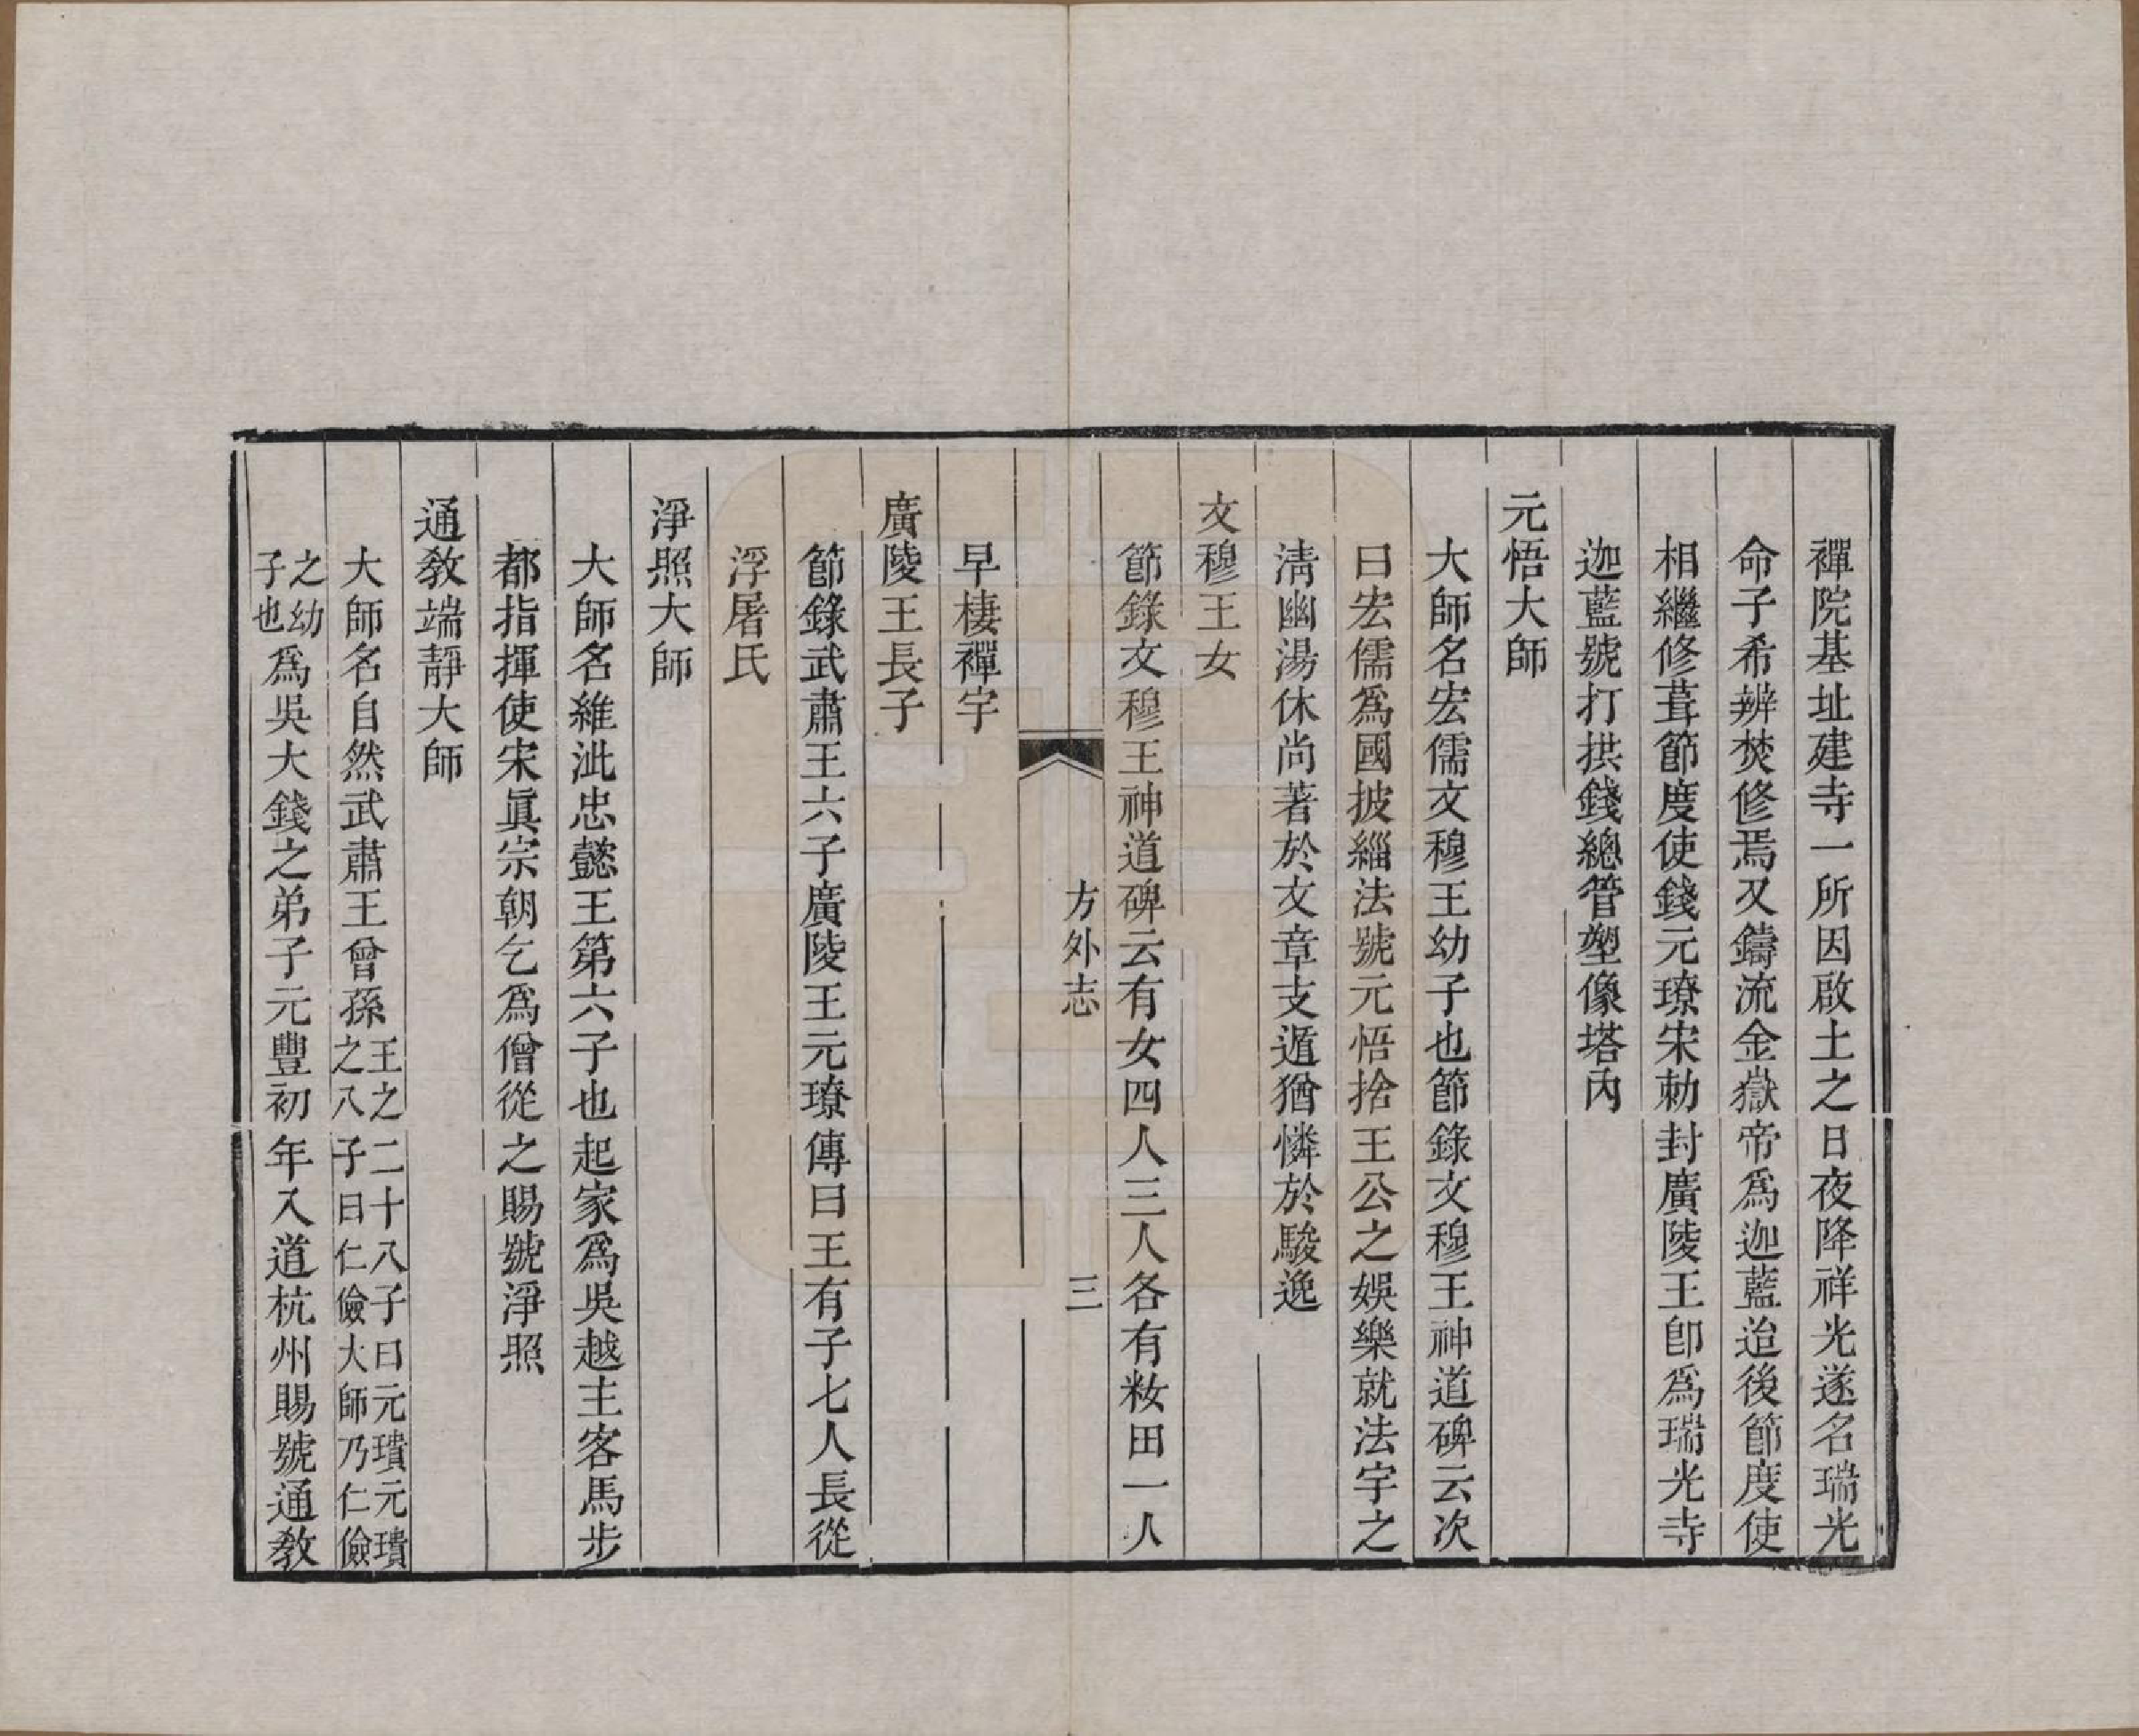 禪院基址建寺一所因啟土之日夜降祥光遂名瑞光
命子希辨焚修焉又鑄流金嶽帝為迦藍迨後節度使
相繼修葺節度使錢元璙宋勅封廣陵王卽為瑞光寺
迦藍號打拱錢總管塑像塔內
元悟大師
大師名宏儒文穆王幼子也節錄文穆王神道碑云次
曰宏儒為國披緇法號元悟捨王公之娛樂就法宇之
淸幽湯休尚著於文章支遁猶憐於駿逸
文穆王女
節錄文穆王神道碑云有女四人三人各有籹田一人
方外志
三
早棲禪宇
廣陵王長子
節錄武肅王六子廣陵王元璙傳曰王有子七人長從
浮屠氏
淨照大師
大師名維泚忠懿王第六子也起家為吳越主客馬步
都指揮使宋眞宗朝乞為僧從之賜號淨照
通敎端靜大師
大師名自然武肅王曾孫王之二十八子曰元璝元璝之八子曰仁儉大師乃仁儉
之幼子也為吳大錢之弟子元豐初年入道杭州賜號通敎